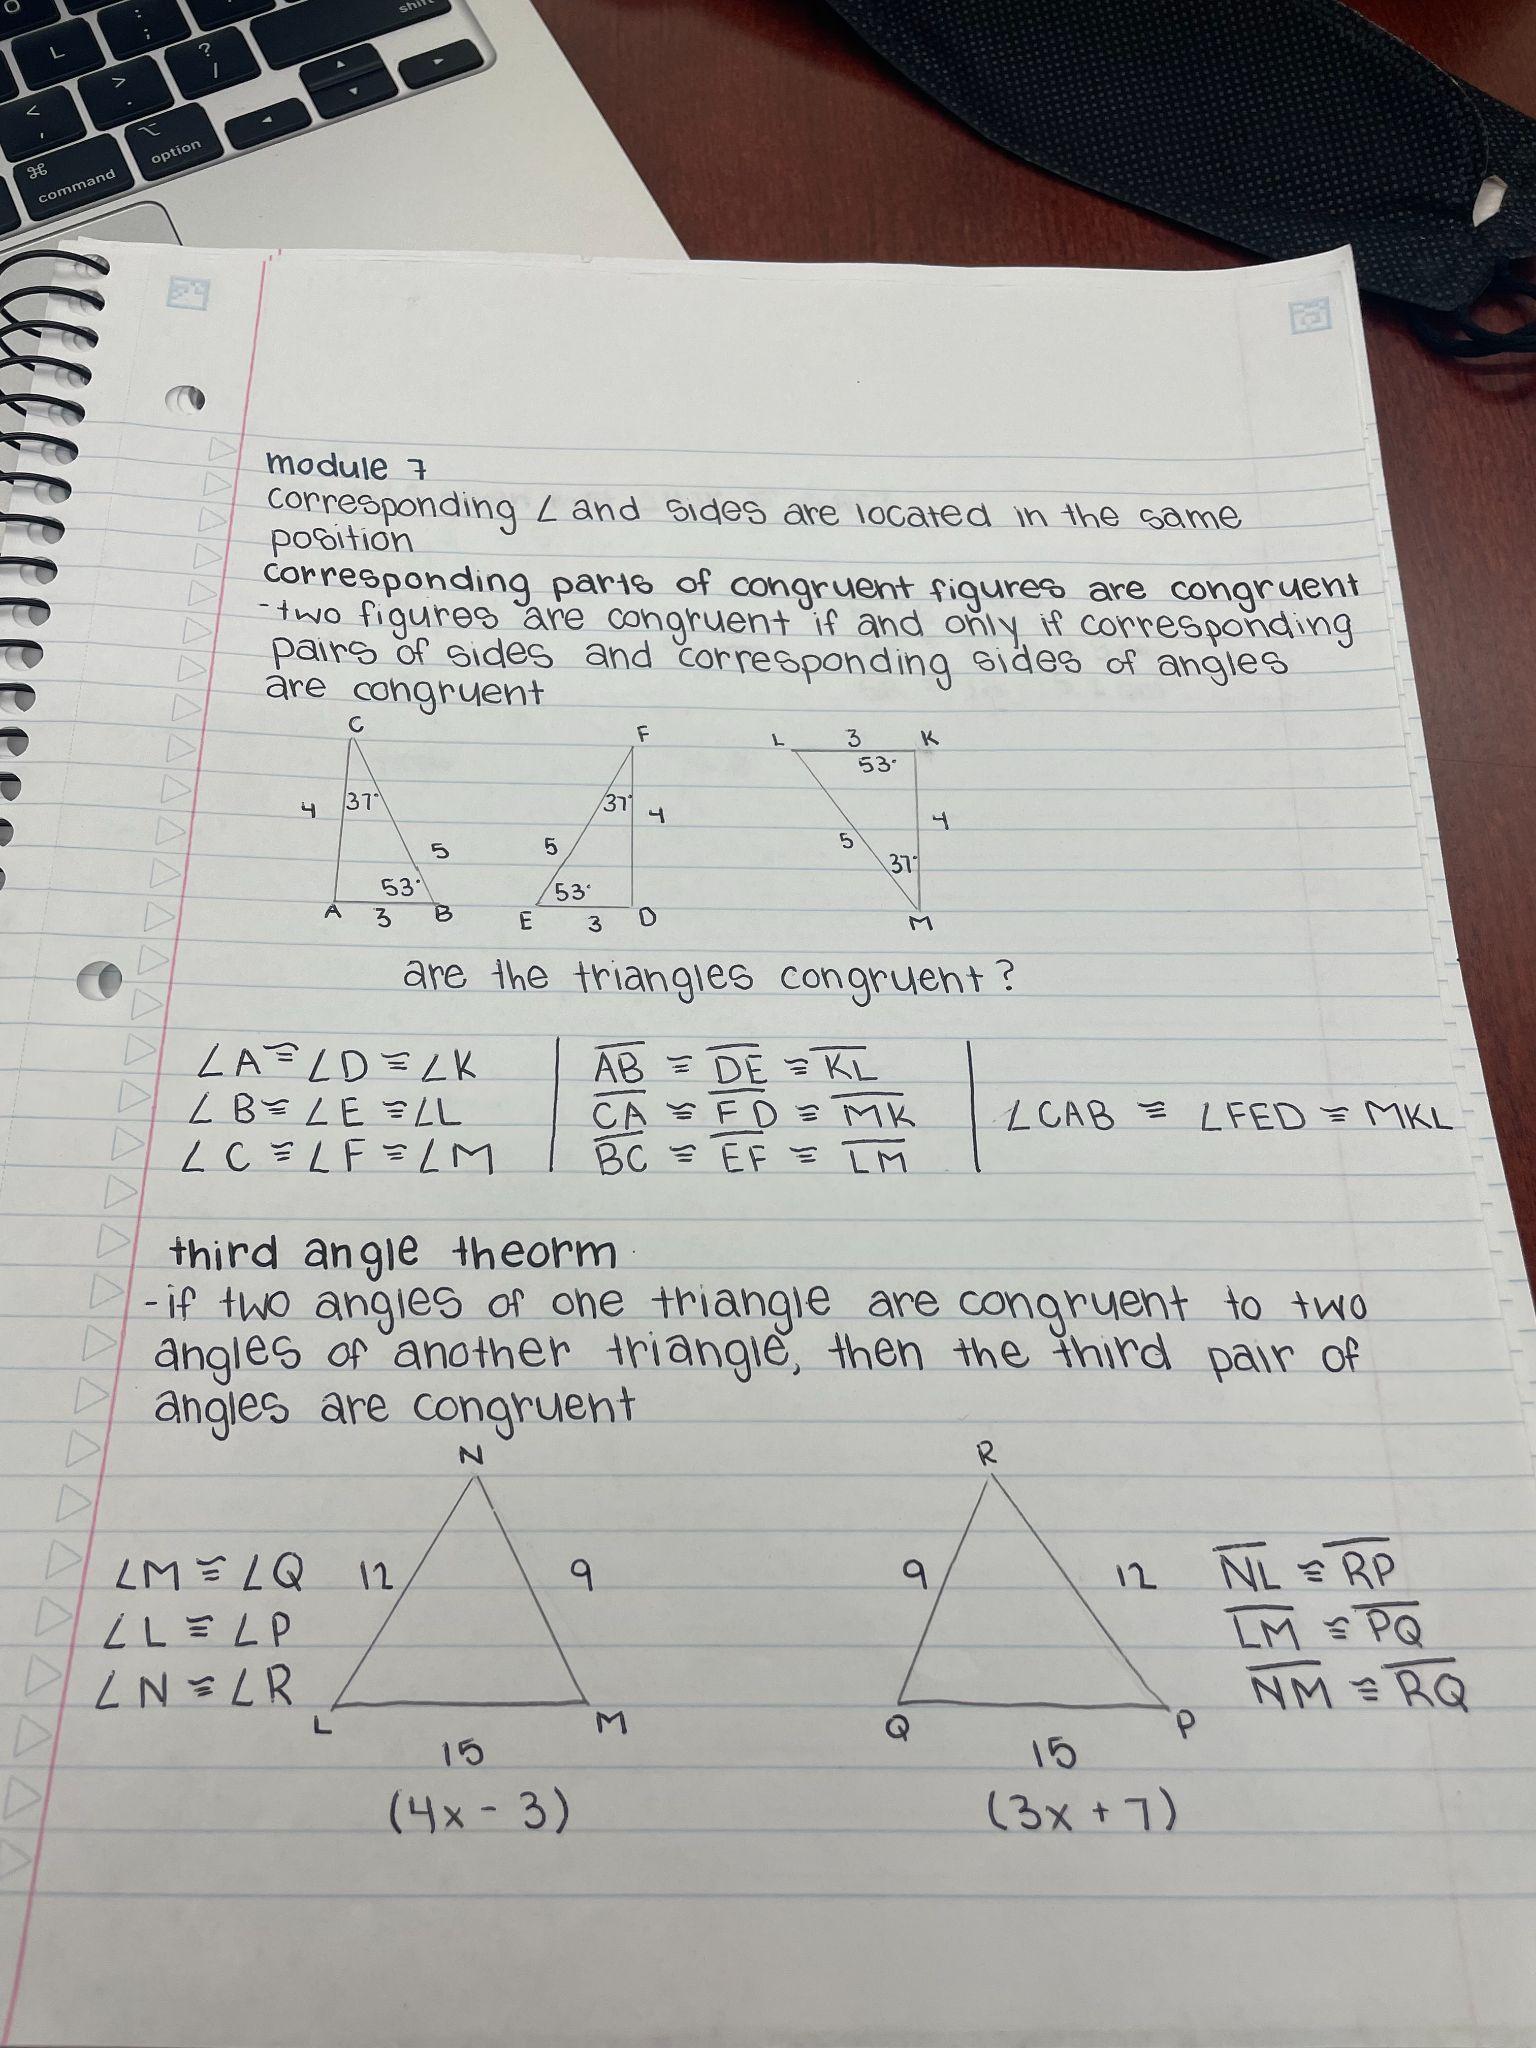 shift
L
:
;
?
/
<
,
>
.
⌘
command
⌥
option
module 7
corresponding ∠ and sides are located in the same
position
corresponding parts of congruent figures are congruent
-two figures are congruent if and only if corresponding
pairs of sides and corresponding sides of angles
are congruent
C
F
L 3 K
53°
4 37° 37° 4 4
5 5 5
37°
53° 53°
A 3 B E 3 D M
are the triangles congruent?
∠A≅∠D≅∠K AB ≅ DE ≅ KL
∠B≅∠E≅∠L CA ≅ FD ≅ MK ∠CAB ≅ ∠FED ≅ MKL
∠C≅∠F≅∠M BC ≅ EF ≅ LM
third angle theorm
-if two angles of one triangle are congruent to two
angles of another triangle, then the third pair of
angles are congruent
N R
∠M≅∠Q 12 9 9 12 NL ≅ RP
∠L≅∠P LM ≅ PQ
∠N≅∠R NM ≅ RQ
L M Q P
15 15
(4x-3) (3x+7)